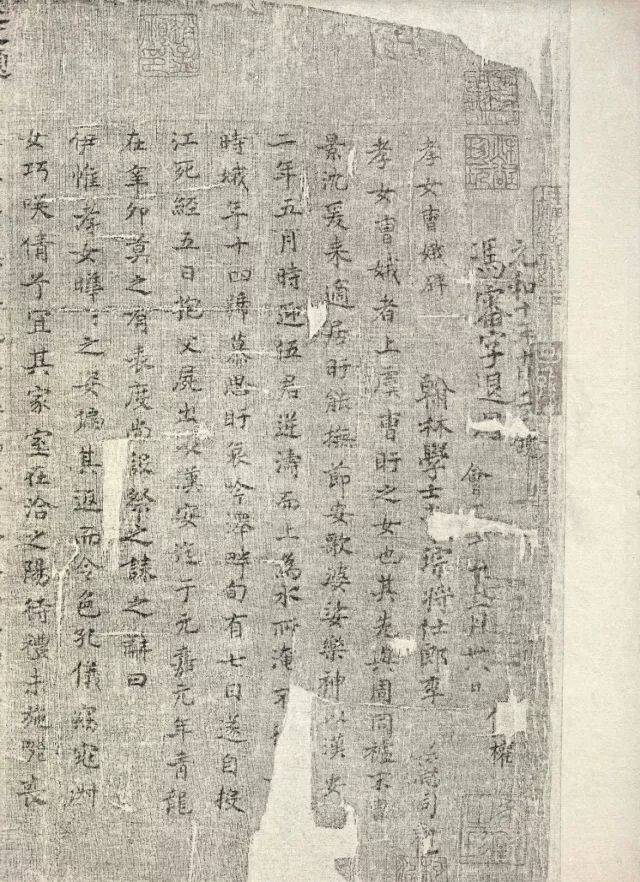 元和十
馮審字退思
月卅日
權
翰林學士
琮將仕郎
孝女曹娥碑
孝女曹娥者上虞曹盱之女也其先與周同祖末胄
景沉爰来適居盱能撫節安歌婆娑樂神以漢安
二年五月時迎伍君逆濤而上為水所淹不
時娥年十四號慕思盱哀吟澤畔旬有七日遂自投
江死經五日抱父屍出以漢安迄于元嘉元年青龍
在辛卯莫之有表度尚設祭之誄之辭曰
伊惟孝女曄〻之姿偏其返而令色孔儀窈窕淑
女巧咲倩兮宜其家室在洽之陽待禮未施嗟喪